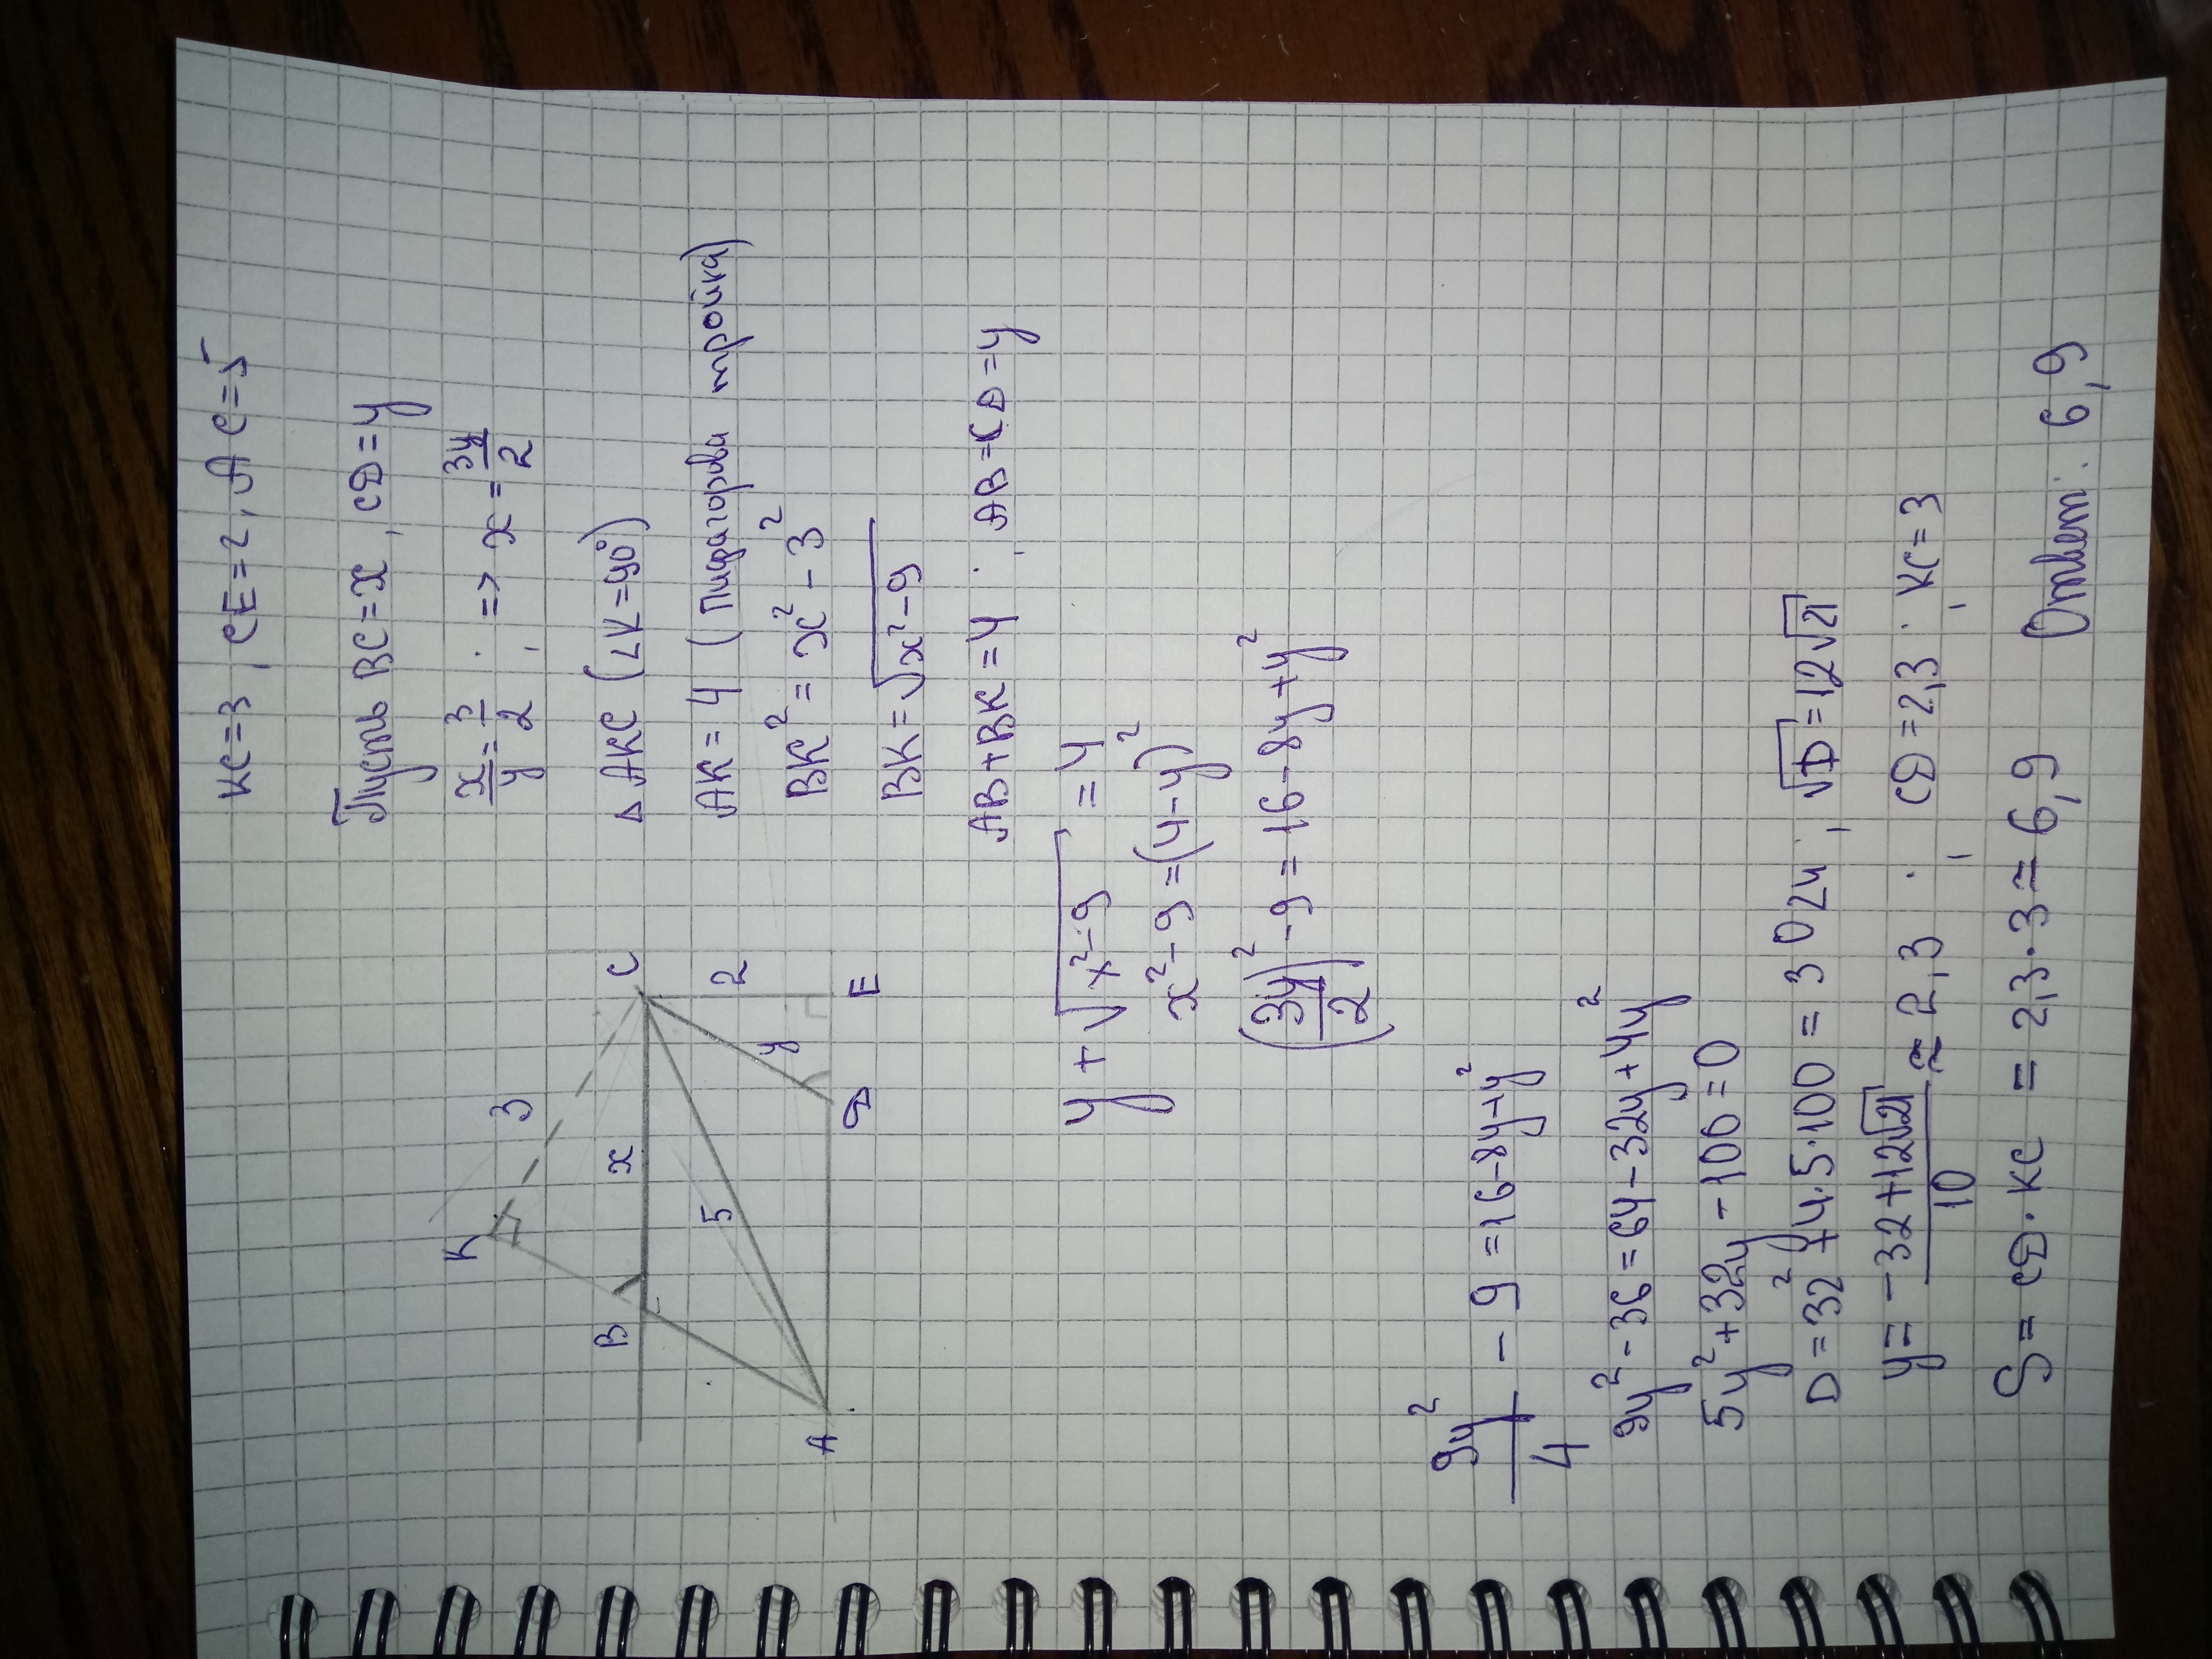 KC=3, CE=2, AC=5
Пусть BC=x, CD=y
x/y = 3/2 ; => x = 3y/2
Δ AKC (∠K=90°)
AK=4 (Пифагорова тройка)
BK² = x² - 3²
BK = √(x²-9)
AB+BK=4 ; AB=CD=y
K
3
B
x
C
5
2
y
A
D
E
y + √(x²-9) = 4
x² - 9 = (4-y)²
(3y/2)² - 9 = 16 - 8y + y²
9y²/4 - 9 = 16 - 8y + y²
9y² - 36 = 64 - 32y + 4y²
5y² + 32y - 100 = 0
D = 32² + 4·5·100 = 3024 ; √D = 12√21
y = (-32 + 12√21)/10 ≈ 2,3 ; CD = 2,3 ; KC = 3
S = CD·KC = 2,3·3 = 6,9 Ответ: 6,9